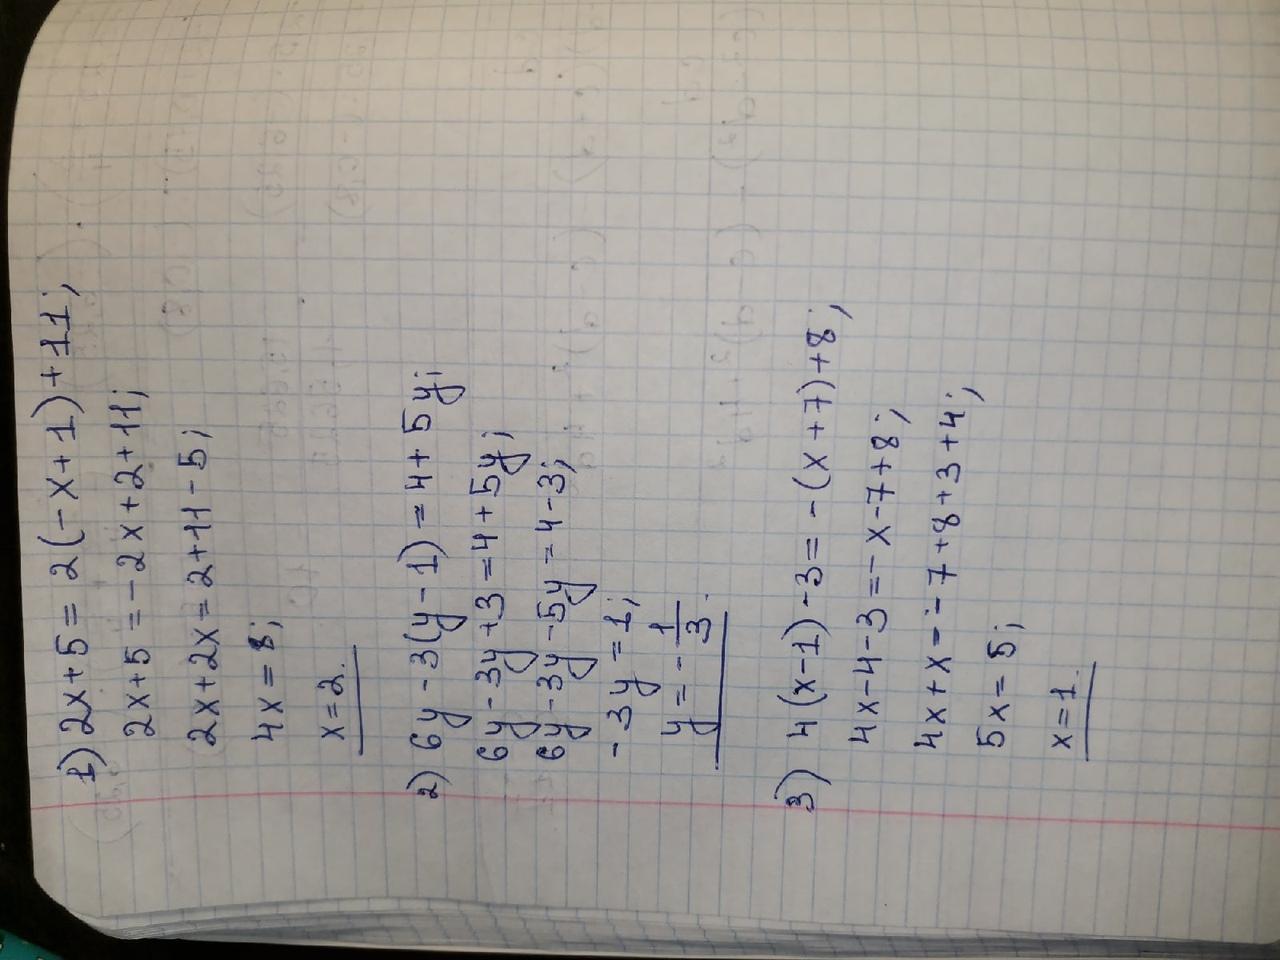 1) 2x+5=2(-x+1)+11;
2x+5=-2x+2+11;
2x+2x=2+11-5;
4x=8;
x=2.
2) 6y-3(y-1)=4+5y;
6y-3y+3=4+5y;
6y-3y-5y=4-3;
-3y=1;
y=-1/3.
3) 4(x-1)-3=-(x+7)+8;
4x-4-3=-x-7+8;
4x+x=-7+8+3+4;
5x=5;
x=1.